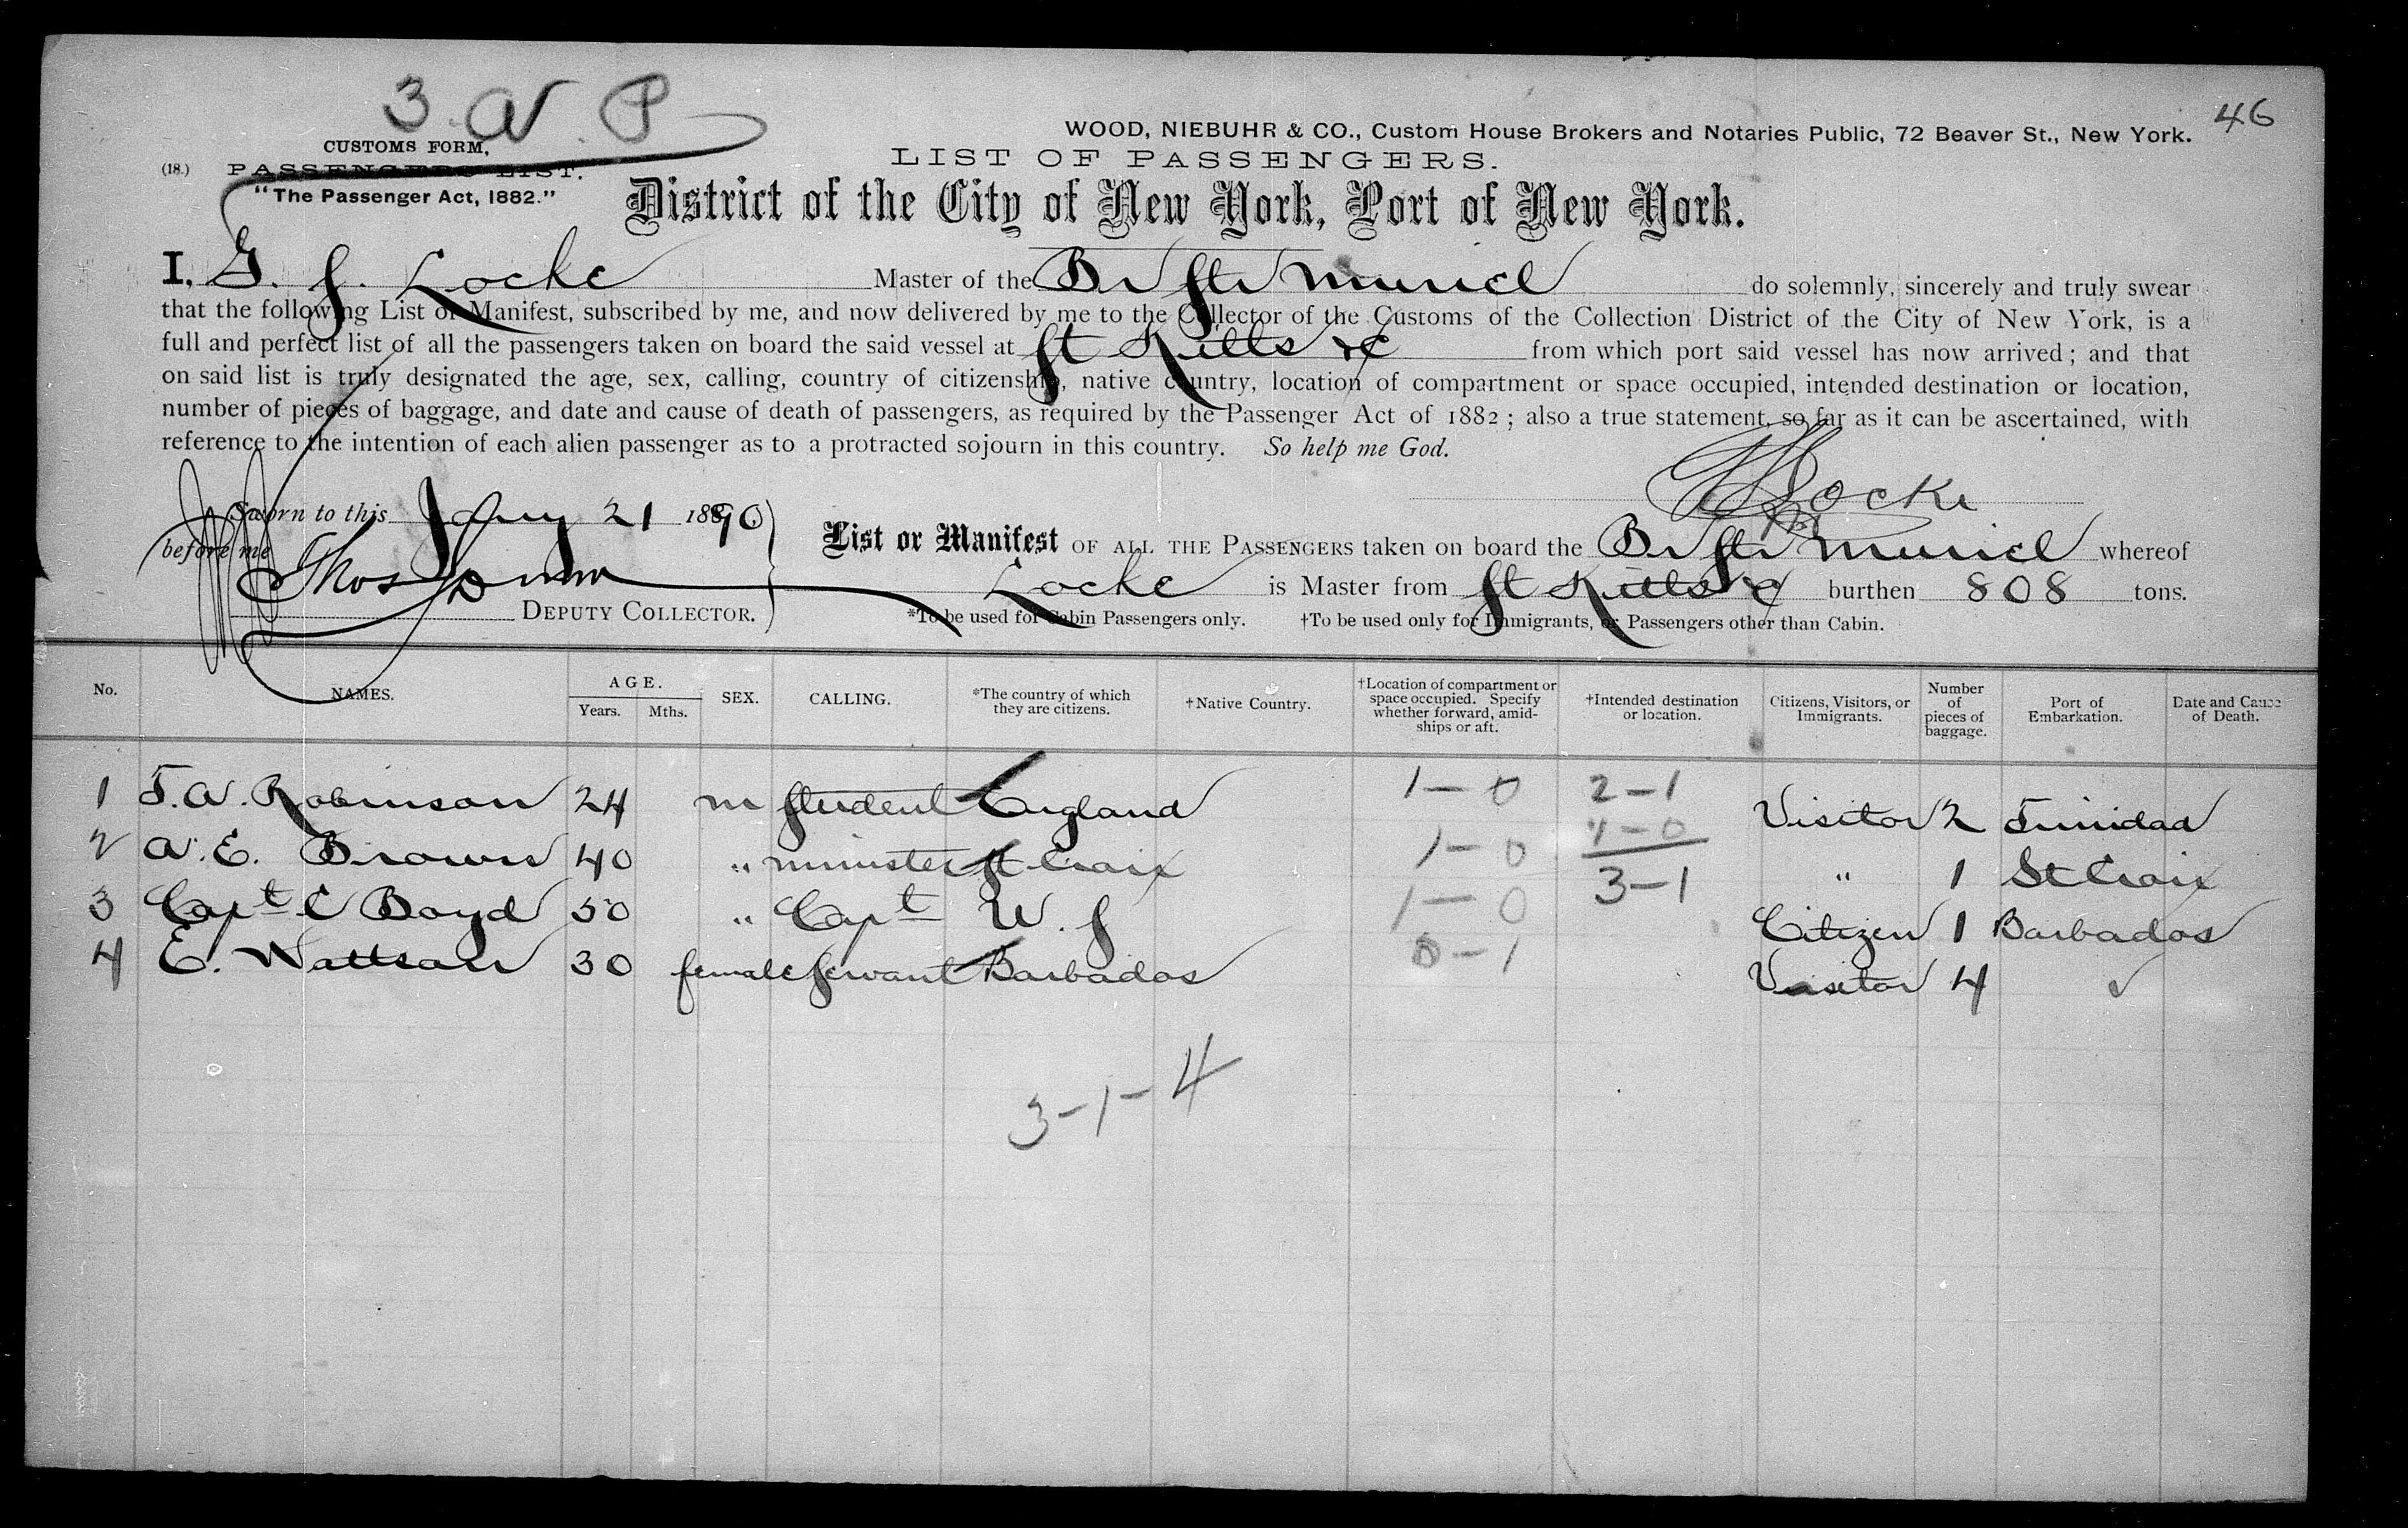 3. W. P
46
WOOD, NIEBUHR & CO., Custom House Brokers and Notaries Public, 72 Beaver St., New York.
CUSTOMS FORM,
LIST OF PASSENGERS.
(18.) PASSENGERS LIST.
"The Passenger Act, 1882."
District of the City of New York, Port of New York.
I, G. S. Locke Master of the Br Str Muriel do solemnly, sincerely and truly swear
that the following List or Manifest, subscribed by me, and now delivered by me to the Collector of the Customs of the Collection District of the City of New York, is a
full and perfect list of all the passengers taken on board the said vessel at St Kitts &c from which port said vessel has now arrived; and that
on said list is truly designated the age, sex, calling, country of citizenship, native country, location of compartment or space occupied, intended destination or location,
number of pieces of baggage, and date and cause of death of passengers, as required by the Passenger Act of 1882; also a true statement, so far as it can be ascertained, with
reference to the intention of each alien passenger as to a protracted sojourn in this country. So help me God.
Locke
Sworn to this Jany 21 1890
before me
Thos Dunn
DEPUTY COLLECTOR.
List or Manifest OF ALL THE PASSENGERS taken on board the Br Str Muriel whereof
Locke is Master from St Kitts &c burthen 808 tons.
*To be used for Cabin Passengers only. †To be used only for Immigrants, or Passengers other than Cabin.
No. NAMES. AGE. Years. Mths. SEX. CALLING. *The country of which they are citizens. †Native Country. †Location of compartment or space occupied. Specify whether forward, amidships or aft. †Intended destination or location. Citizens, Visitors, or Immigrants. Number of pieces of baggage. Port of Embarkation. Date and Cause of Death.
1 T. A. Robinson 24 m Student England 1-0 2-1 Visitor 2 Trinidad
2 A. E. Brown 40 " minister St Croix 1-0 1-0 " 1 St Croix
3 Capt C Boyd 50 " Capt U. S 1-0 3-1 Citizen 1 Barbados
4 E. Wattson 30 female Servant Barbados 0-1 Visitor 4 ✓
3-1-4